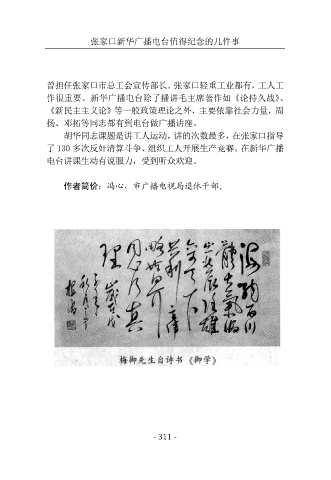 张家口新华广播电台值得纪念的几件事
曾担任张家口市总工会宣传部长。张家口轻重工业都有，工人工
作很重要。新华广播电台除了播讲毛主席著作如《论持久战》、
《新民主主义论》等一般政策理论之外，主要依靠社会力量，周
扬、邓拓等同志都有到电台做广播讲座。
胡华同志课题是讲工人运动，讲的次数最多，在张家口指导
了 130 多次反奸清算斗争、组织工人开展生产竞赛。在新华广播
电台讲课生动有说服力，受到听众欢迎。
作者简价：冯心，市广播电视局退休干部。
海纳百川
梅御先生自诗书《御学》
- 311 -